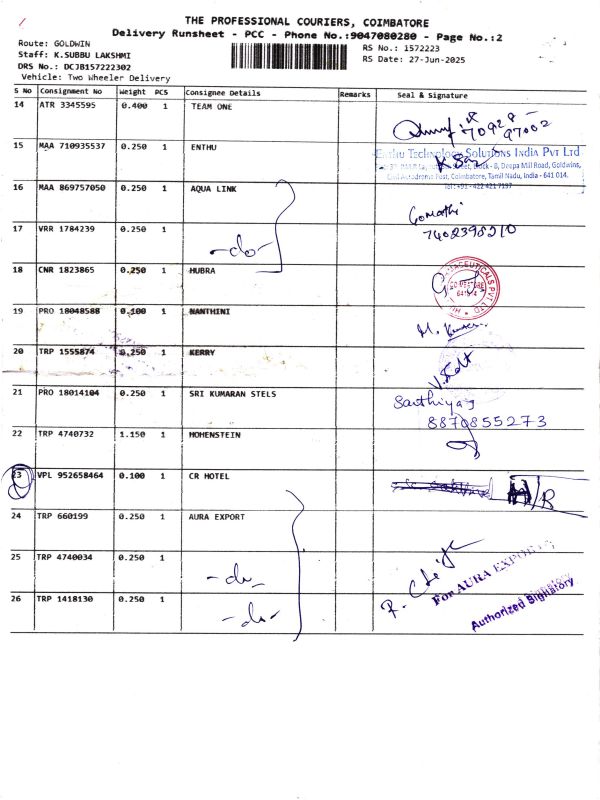 THE PROFESSIONAL COURIERS, COIMBATORE
Delivery Runsheet - PCC - Phone No.:9047080280 - Page No.:2
Route: GOLDWIN
RS No.: 1572223
Staff: K.SUBBU LAKSHMI
RS Date: 27-Jun-2025
DRS No.: DCJB157222302
Vehicle: Two Wheeler Delivery
S No Consignment No Weight PCS Consignee Details Remarks Seal & Signature
14 ATR 3345595 0.400 1 TEAM ONE
70929
97002
15 MAA 710935537 0.250 1 ENTHU
Enthu Technology Solutions India Pvt Ltd
Block - B, Deepa Mill Road, Goldwins,
Civil Aerodrome Post, Coimbatore, Tamil Nadu, India - 641 014.
Tel: +91 - 422 421 7197
16 MAA 869757050 0.250 1 AQUA LINK
Gomathi
7402398510
17 VRR 1784239 0.250 1 -do-
18 CNR 1823865 0.250 1 HUBRA
19 PRO 18048588 0.100 1 NANTHINI
20 TRP 1555874 0.250 1 KERRY
21 PRO 18014104 0.250 1 SRI KUMARAN STELS
Sarthiyaj
8870855273
22 TRP 4740732 1.150 1 HOHENSTEIN
23 VPL 952658464 0.100 1 CR HOTEL
H/R
24 TRP 660199 0.250 1 AURA EXPORT
25 TRP 4740034 0.250 1 -do-
For AURA EXPORTS,
26 TRP 1418130 0.250 1 -do-
Authorized Signatory